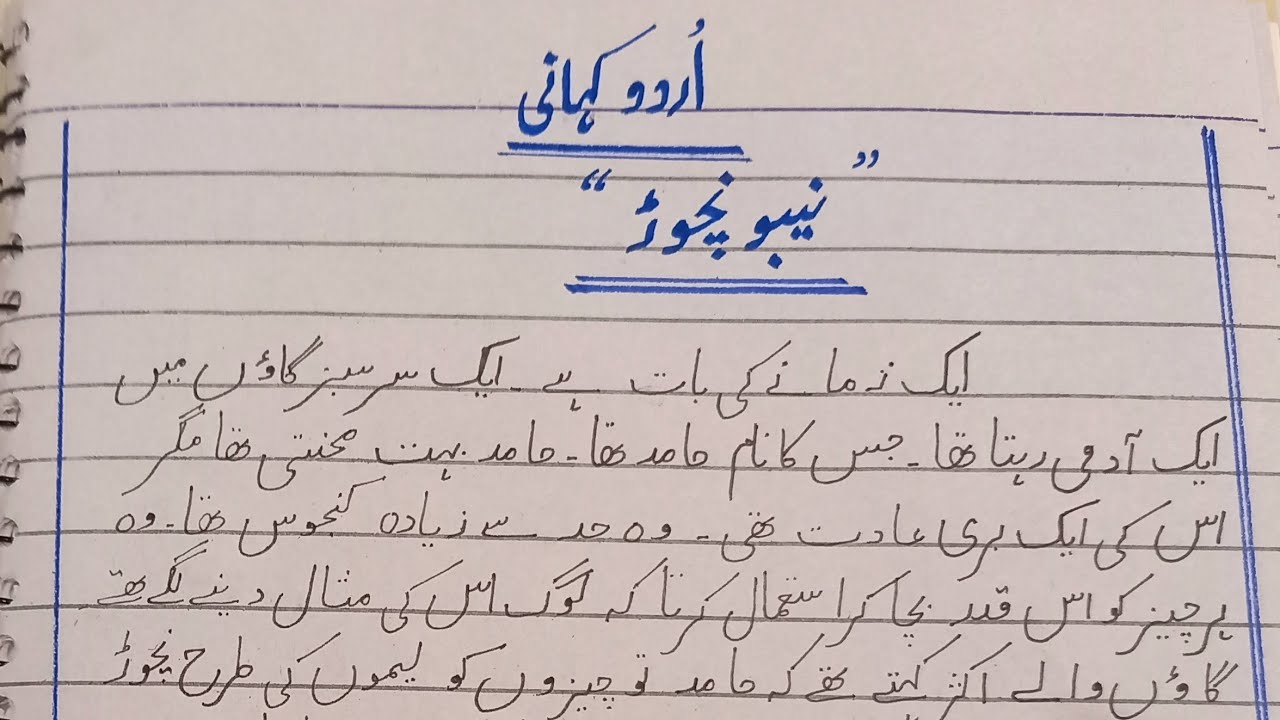 اُردو کہانی
”نیبو نچوڑ“
ایک زمانے کی بات ہے۔ ایک سرسبز گاؤں میں
ایک آدمی رہتا تھا۔ جس کا نام حامد تھا۔ حامد بہت محنتی تھا مگر
اس کی ایک بری عادت تھی۔ وہ حد سے زیادہ کنجوس تھا۔ وہ
ہر چیز کو اس قدر بچا کر استعمال کرتا کہ لوگ اس کی مثال دینے لگے تھے
گاؤں والے اکثر کہتے تھے کہ حامد تو چیزوں کو لیموں کی طرح نچوڑ